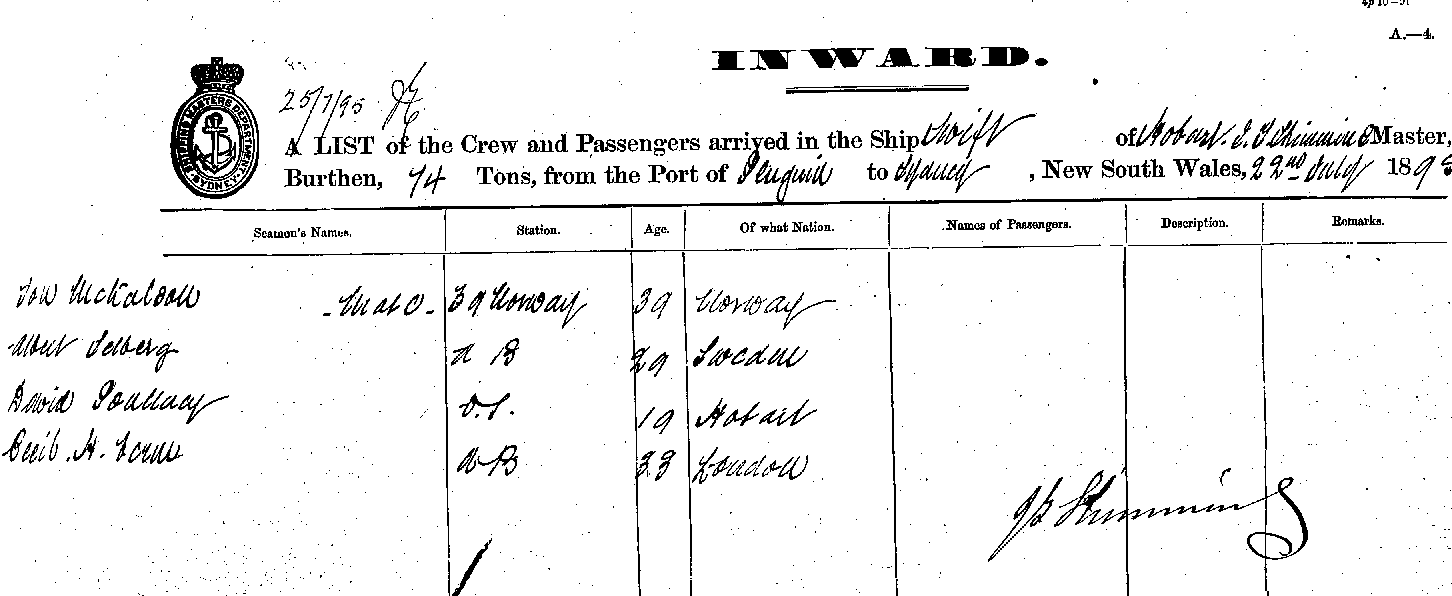 A.—4.
INWARD.
SHIPPING MASTERS DEPARTMENT SYDNEY
25/7/95
A LIST of the Crew and Passengers arrived in the Ship Swift of Hobart. Master,
Burthen, 74 Tons, from the Port of Penguin to Sydney, New South Wales, 22nd July 189
Seamen's Names. Station. Age. Of what Nation. Names of Passengers. Description. Remarks.
Mate 39 Norway 39 Norway
Albert A B 29 Sweden
David O.S. 19 Hobart
Cecil H. A B 33 London